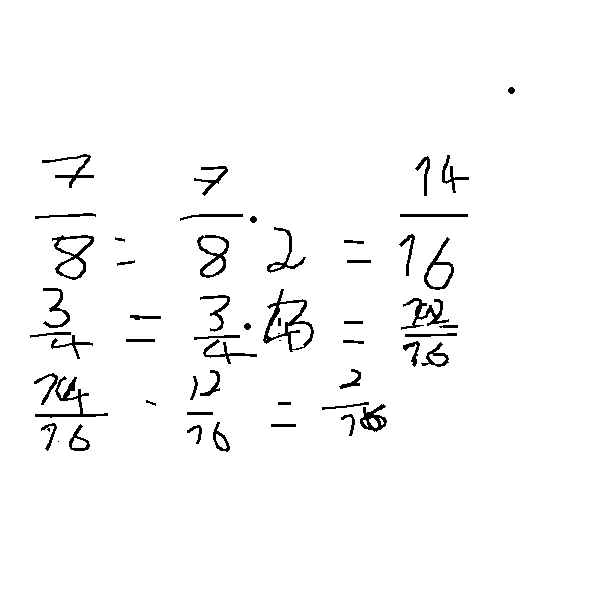 7/8 = 7/8 · 2 = 14/16
3/4 = 3/4 · = 12/16
14/16 - 12/16 = 2/16